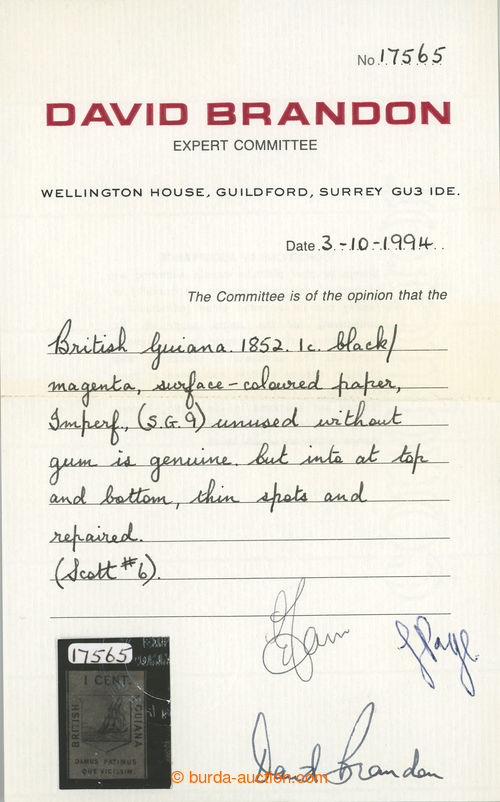 No. 17565
DAVID BRANDON
EXPERT COMMITTEE
WELLINGTON HOUSE, GUILDFORD, SURREY GU3 IDE.
Date. 3.-10-1994...
The Committee is of the opinion that the
British Guiana. 1852. 1c. black/
magenta, surface-coloured paper,
Imperf., (S.G.9) unused without
gum is genuine. but into at top
and bottom, thin spots and
repaired.
(Scott #6).
17565
1 CENT.
BRITISH
GUIANA
DAMUS PATIMUS
QUE VICISSIM
David Brandon
© burda-auction.com